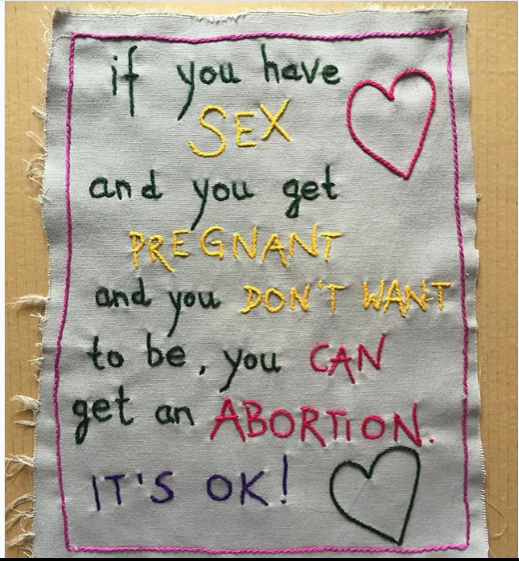 if you have
SEX
and you get
PREGNANT
and you DON'T WANT
to be, you CAN
get an ABORTION.
IT'S OK!